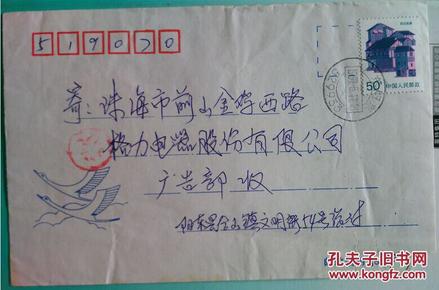 519070
50分
中国人民邮政
寄:珠海市前山金鸡西路
格力电器股份有限公司
广告部 收
阳东县合山镇文明街54号
孔夫子旧书网
www.kongfz.com